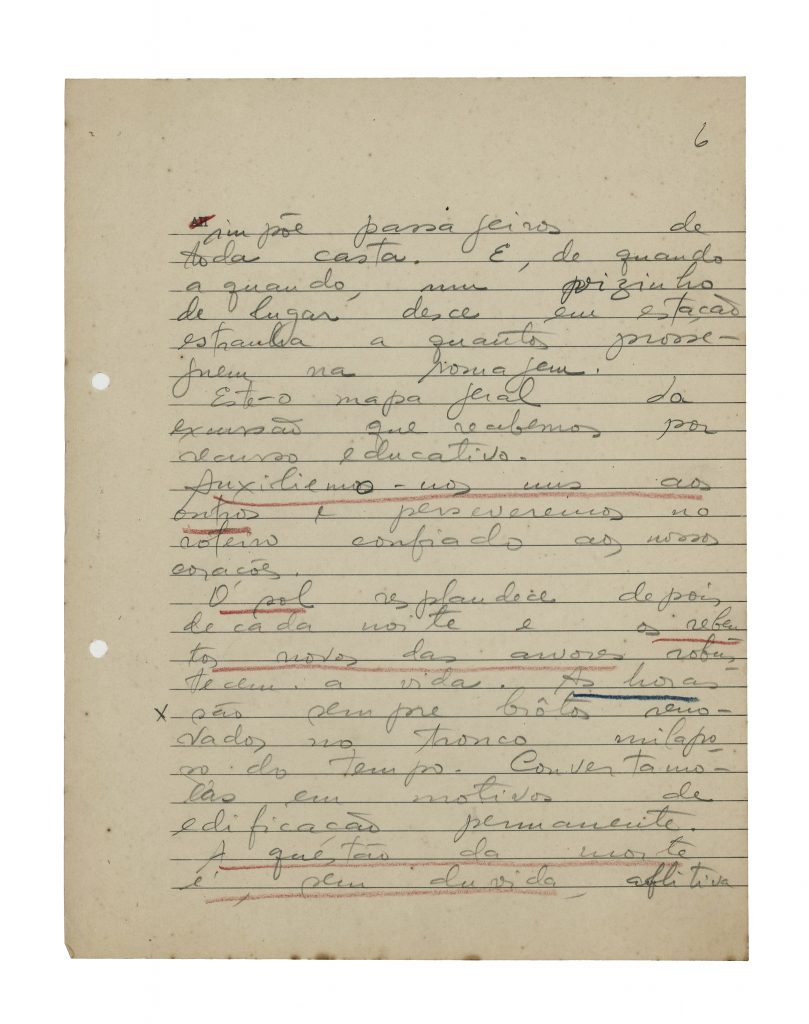 6
impõe passageiros de
toda casta. E, de quando
a quando, um vizinho
de lugar desce em estação
estranha a quantos prosse-
guem na romagem.
Este-o mapa geral da
excursão que recebemos por
recurso educativo.
Auxiliemo-nos uns aos
outros e perseveremos no
roteiro confiado aos nossos
corações.
O sol resplandece depois
de cada noite e os reben
tos novos das arvores robus
tecem a vida. As horas
X são sempre brôtos reno-
vados no tronco milapo
ro do tempo. Convertamo-
las em motivos de
edificação permanente.
A questão da morte
é, sem duvida, aflitiva